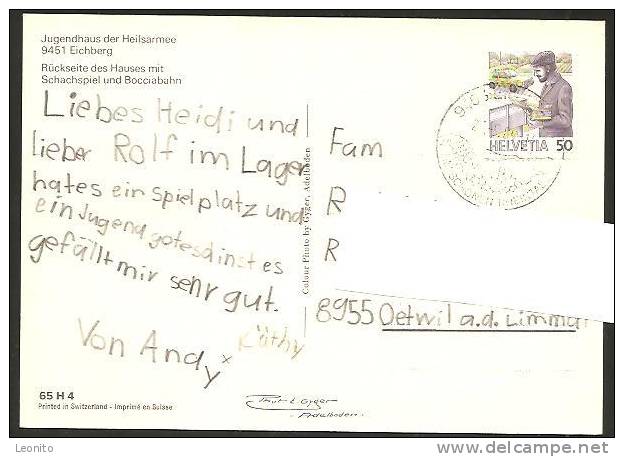 Jugendhaus der Heilsarmee
9451 Eichberg
Rückseite des Hauses mit
Schachspiel und Bocciabahn
Liebes Heidi und
lieber Rolf im Lager
hates ein spielplatz und
ein Jugend gotesdinst es
gefällt mir sehr gut.
Von Andy x Käthy
65 H 4
Printed in Switzerland - Imprimé en Suisse
Colour Photo by Gyger, Adelboden
Gyger
- Adelboden -
HELVETIA 50
Fam
R
R
8955 Oetwil a.d. Limmat
Leonito
www.delcampe.net